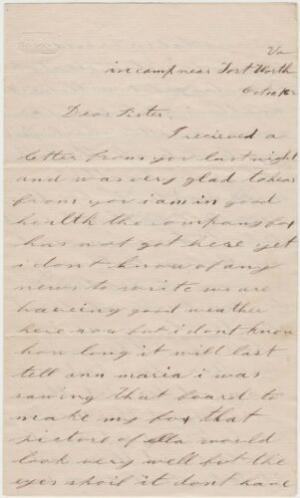 Va
in camp near Fort Worth
Octo 16
Dear Sister.
I recieved a
letter from you last night
and was very glad to hear
from you i am in good
health the company box
has not got here yet
i dont know of any
news to write we are
haveing good weather
here now but i dont know
how long it will last
tell ann maria i was
sawing that board to
make my box that
picture of ella would
look very well but the
eyes spoil it dont have